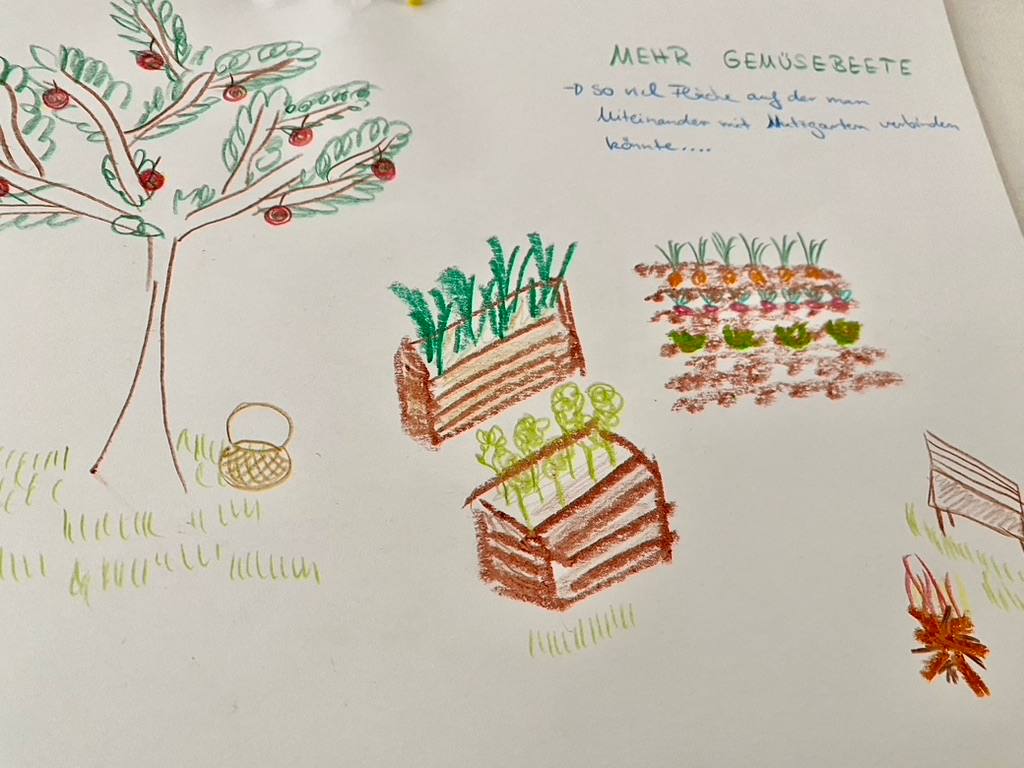 MEHR GEMÜSEBEETE
→ so viel Fläche auf der man
Miteinander mit Nutzgarten verbinden
könnte....